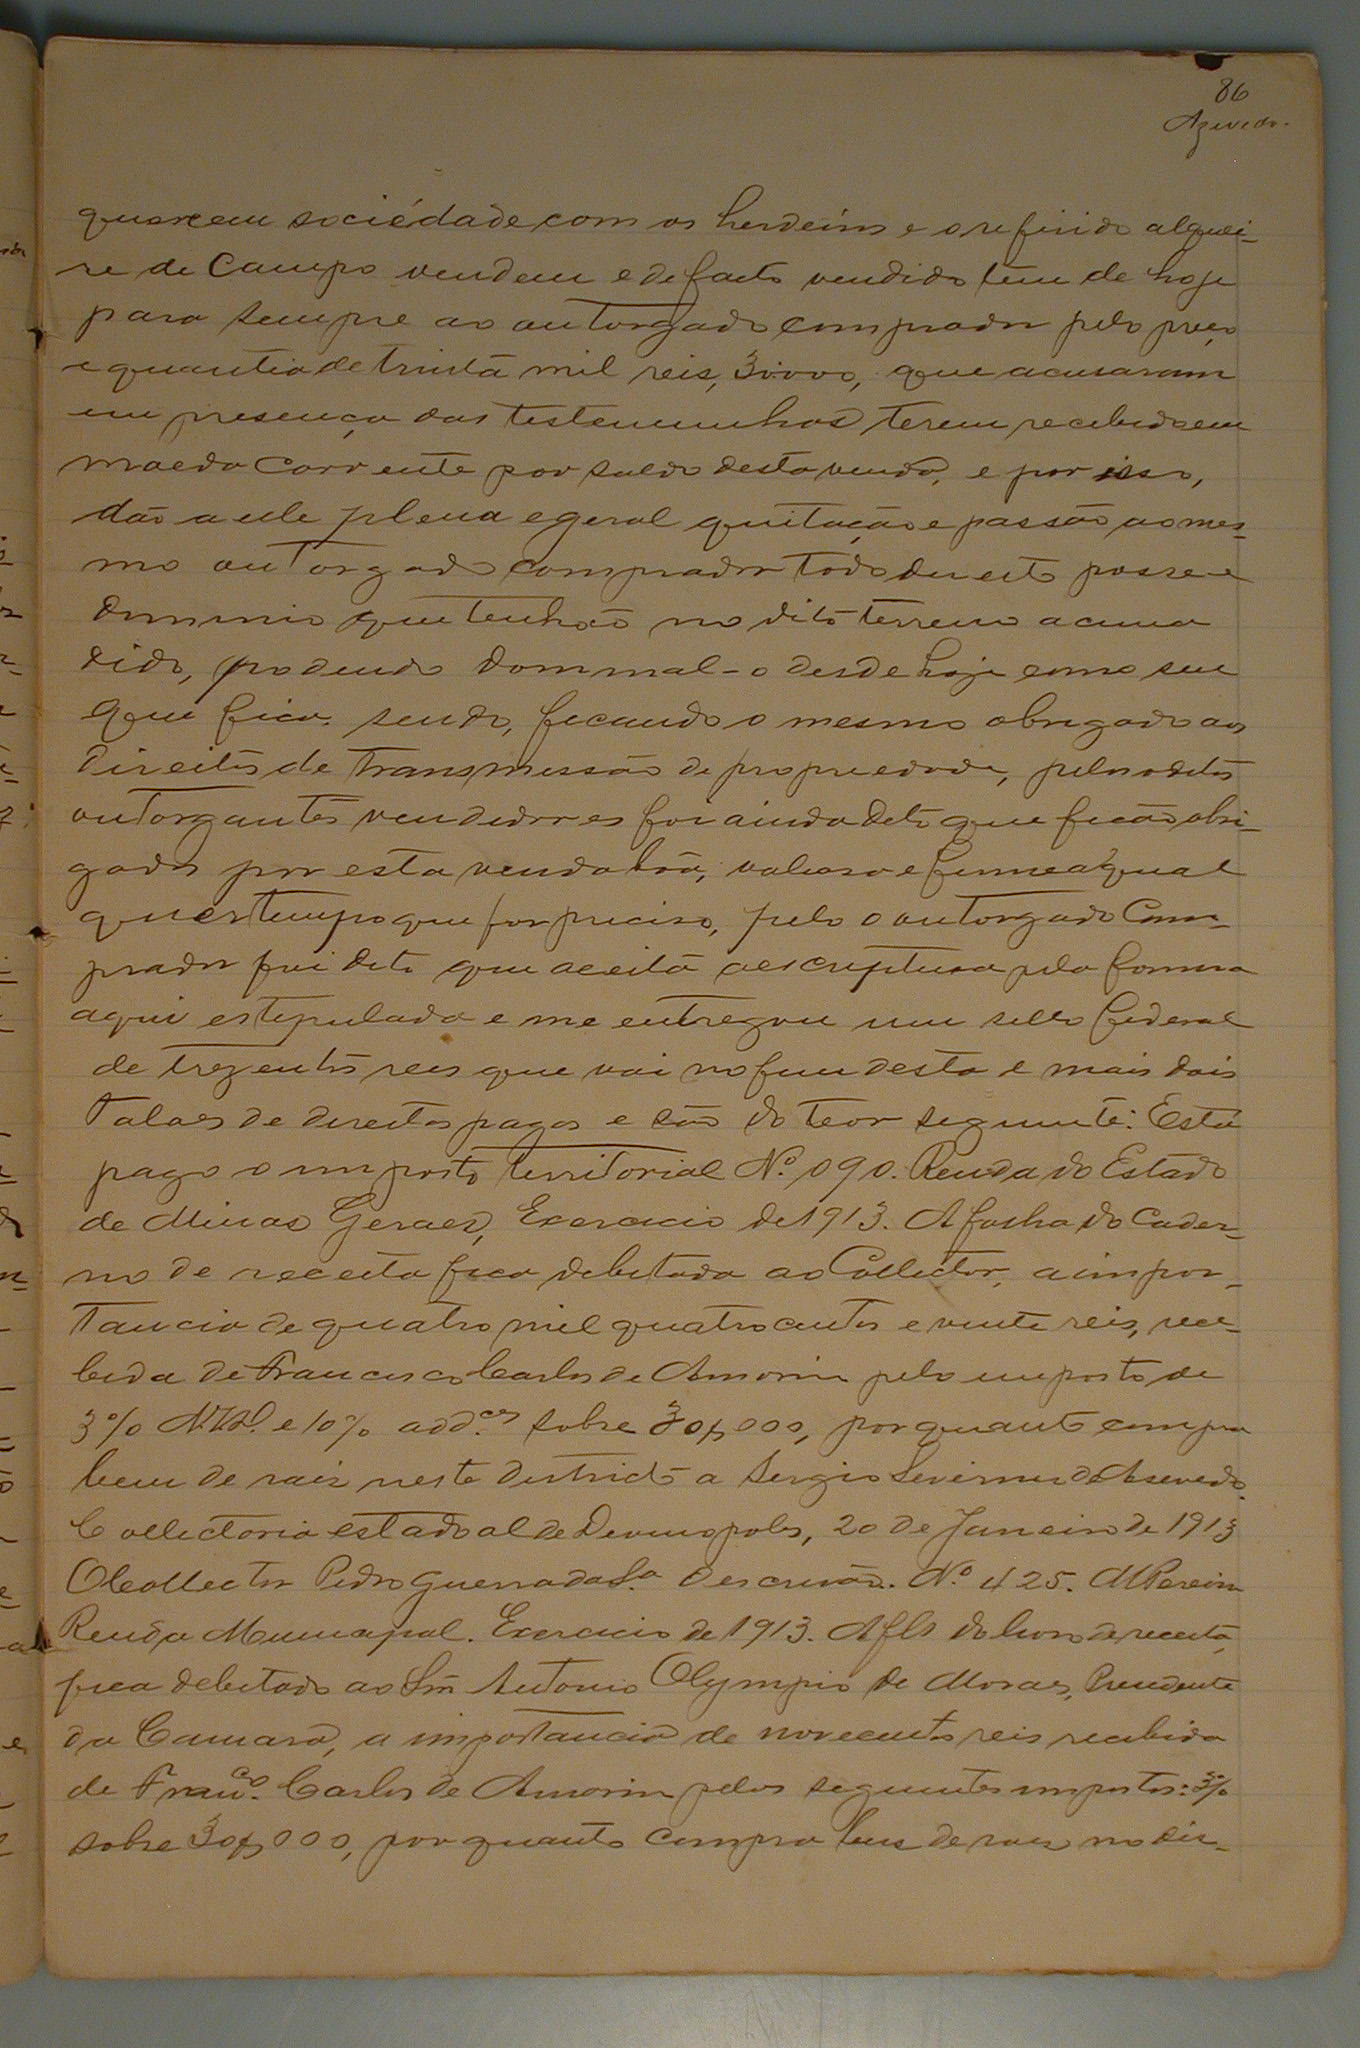 86
Azevedo.
quer em sociédade com os herdeiros e o referido alquei-
re de Campo vendem e de facto vendido têm de hoje
para sempre ao outorgado comprador pelo preço
e quantia de trinta mil reis, 30000, que acusaram
em presença das testemunhas terem recebido em
moeda corrente por saldo desta venda, e por isso,
dão a elle plena e geral quitação e passão ao mes-
mo outorgado comprador todo direito posse e
dominio que tenhão no dito terreno acima
dido, podendo dominal-o desde hoje como seu
que fica sendo, ficando o mesmo obrigado aos
direitos de transmissão de propriedade, pelos ditos
outorgantes vendedores foi ainda dito que ficão obri-
gados por esta venda bôa, valiosa e firme a qual
quer tempo que for preciso, pelo o outorgado Com-
prador foi dito que aceita a escriptura pela forma
aqui estepulada e me entregou um sello federal
de trezentos reis que vai no fim desta e mais dois
talões de direitos pagos e são do teor seguinte: Está
pago o imposto territorial Nº 090. Renda do Estado
de Minas Geraes, Exercicio de 1913. A folha do Cader-
no de receita fica debitada ao Collector, a impor-
tancia de quatro mil quatrocentos e vinte reis, rece-
bida de Francisco Carlos de Amorim pelo imposto de
3% e 10% add.ces sobre 30$000, por quanto compra
bem de raiz neste districto a Sergio Severino de Asevedo.
Collectoria estadoal de Divinopolis, 20 de Janeiro de 1913
O Collector Pedro Guerra da S.a O escrivão. Nº 425. M Pereira
Renda Municipal. Exercicio de 1913. A fls do livro de receita
fica debitado ao Snr. Antonio Olympio de Moraes, Presidente
da Camara, a importancia de novecentos reis recebida
de Franc.co Carlos de Amorim pelos seguintes impostos: 3%
sobre 30$000, por quanto compra bens de raiz no dis-